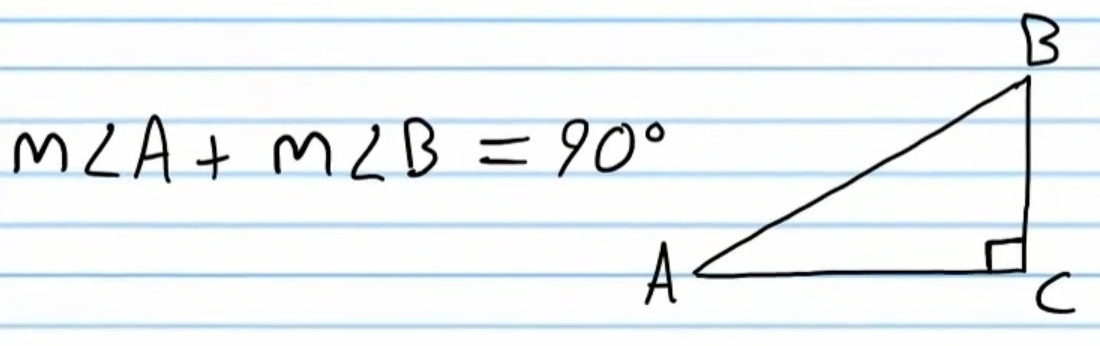 m∠A + m∠B = 90°
B
A
C